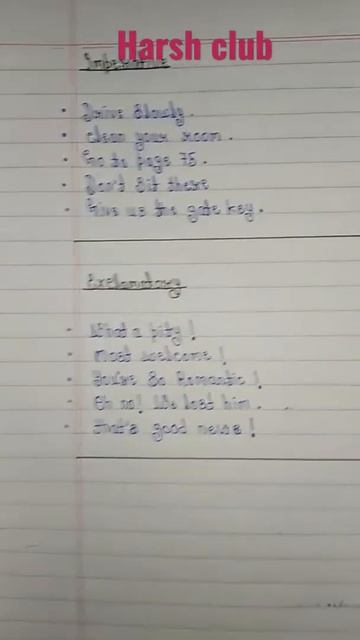 Harsh club
Imperative
Drive slowly.
Clean your room.
Go to page 75.
Don't sit there
Give us the gate key.
Exclamatory
What a pity!
Most welcome!
You're so Romantic!
Oh no! We lost him.
That's good news!